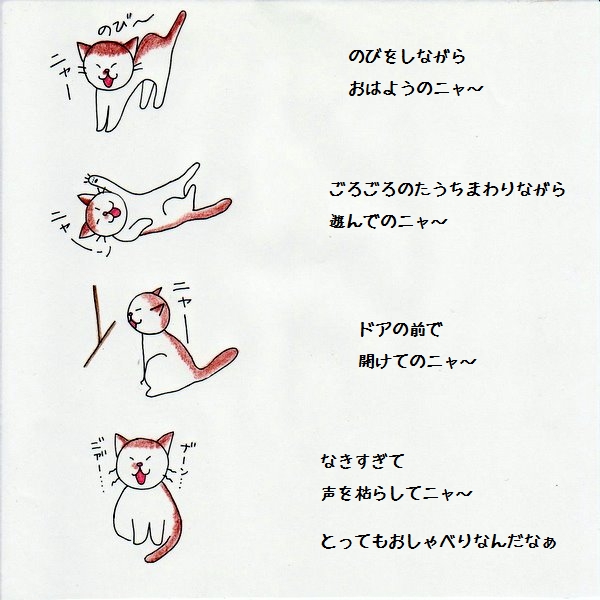 のび〜
ニャー
のびをしながら
おはようのニャ〜
ニャ〜
ごろごろのたうちまわりながら
遊んでのニャ〜
ニャー
ドアの前で
開けてのニャ〜
なきすぎて
声を枯らしてニャ〜
とってもおしゃべりなんだなぁ